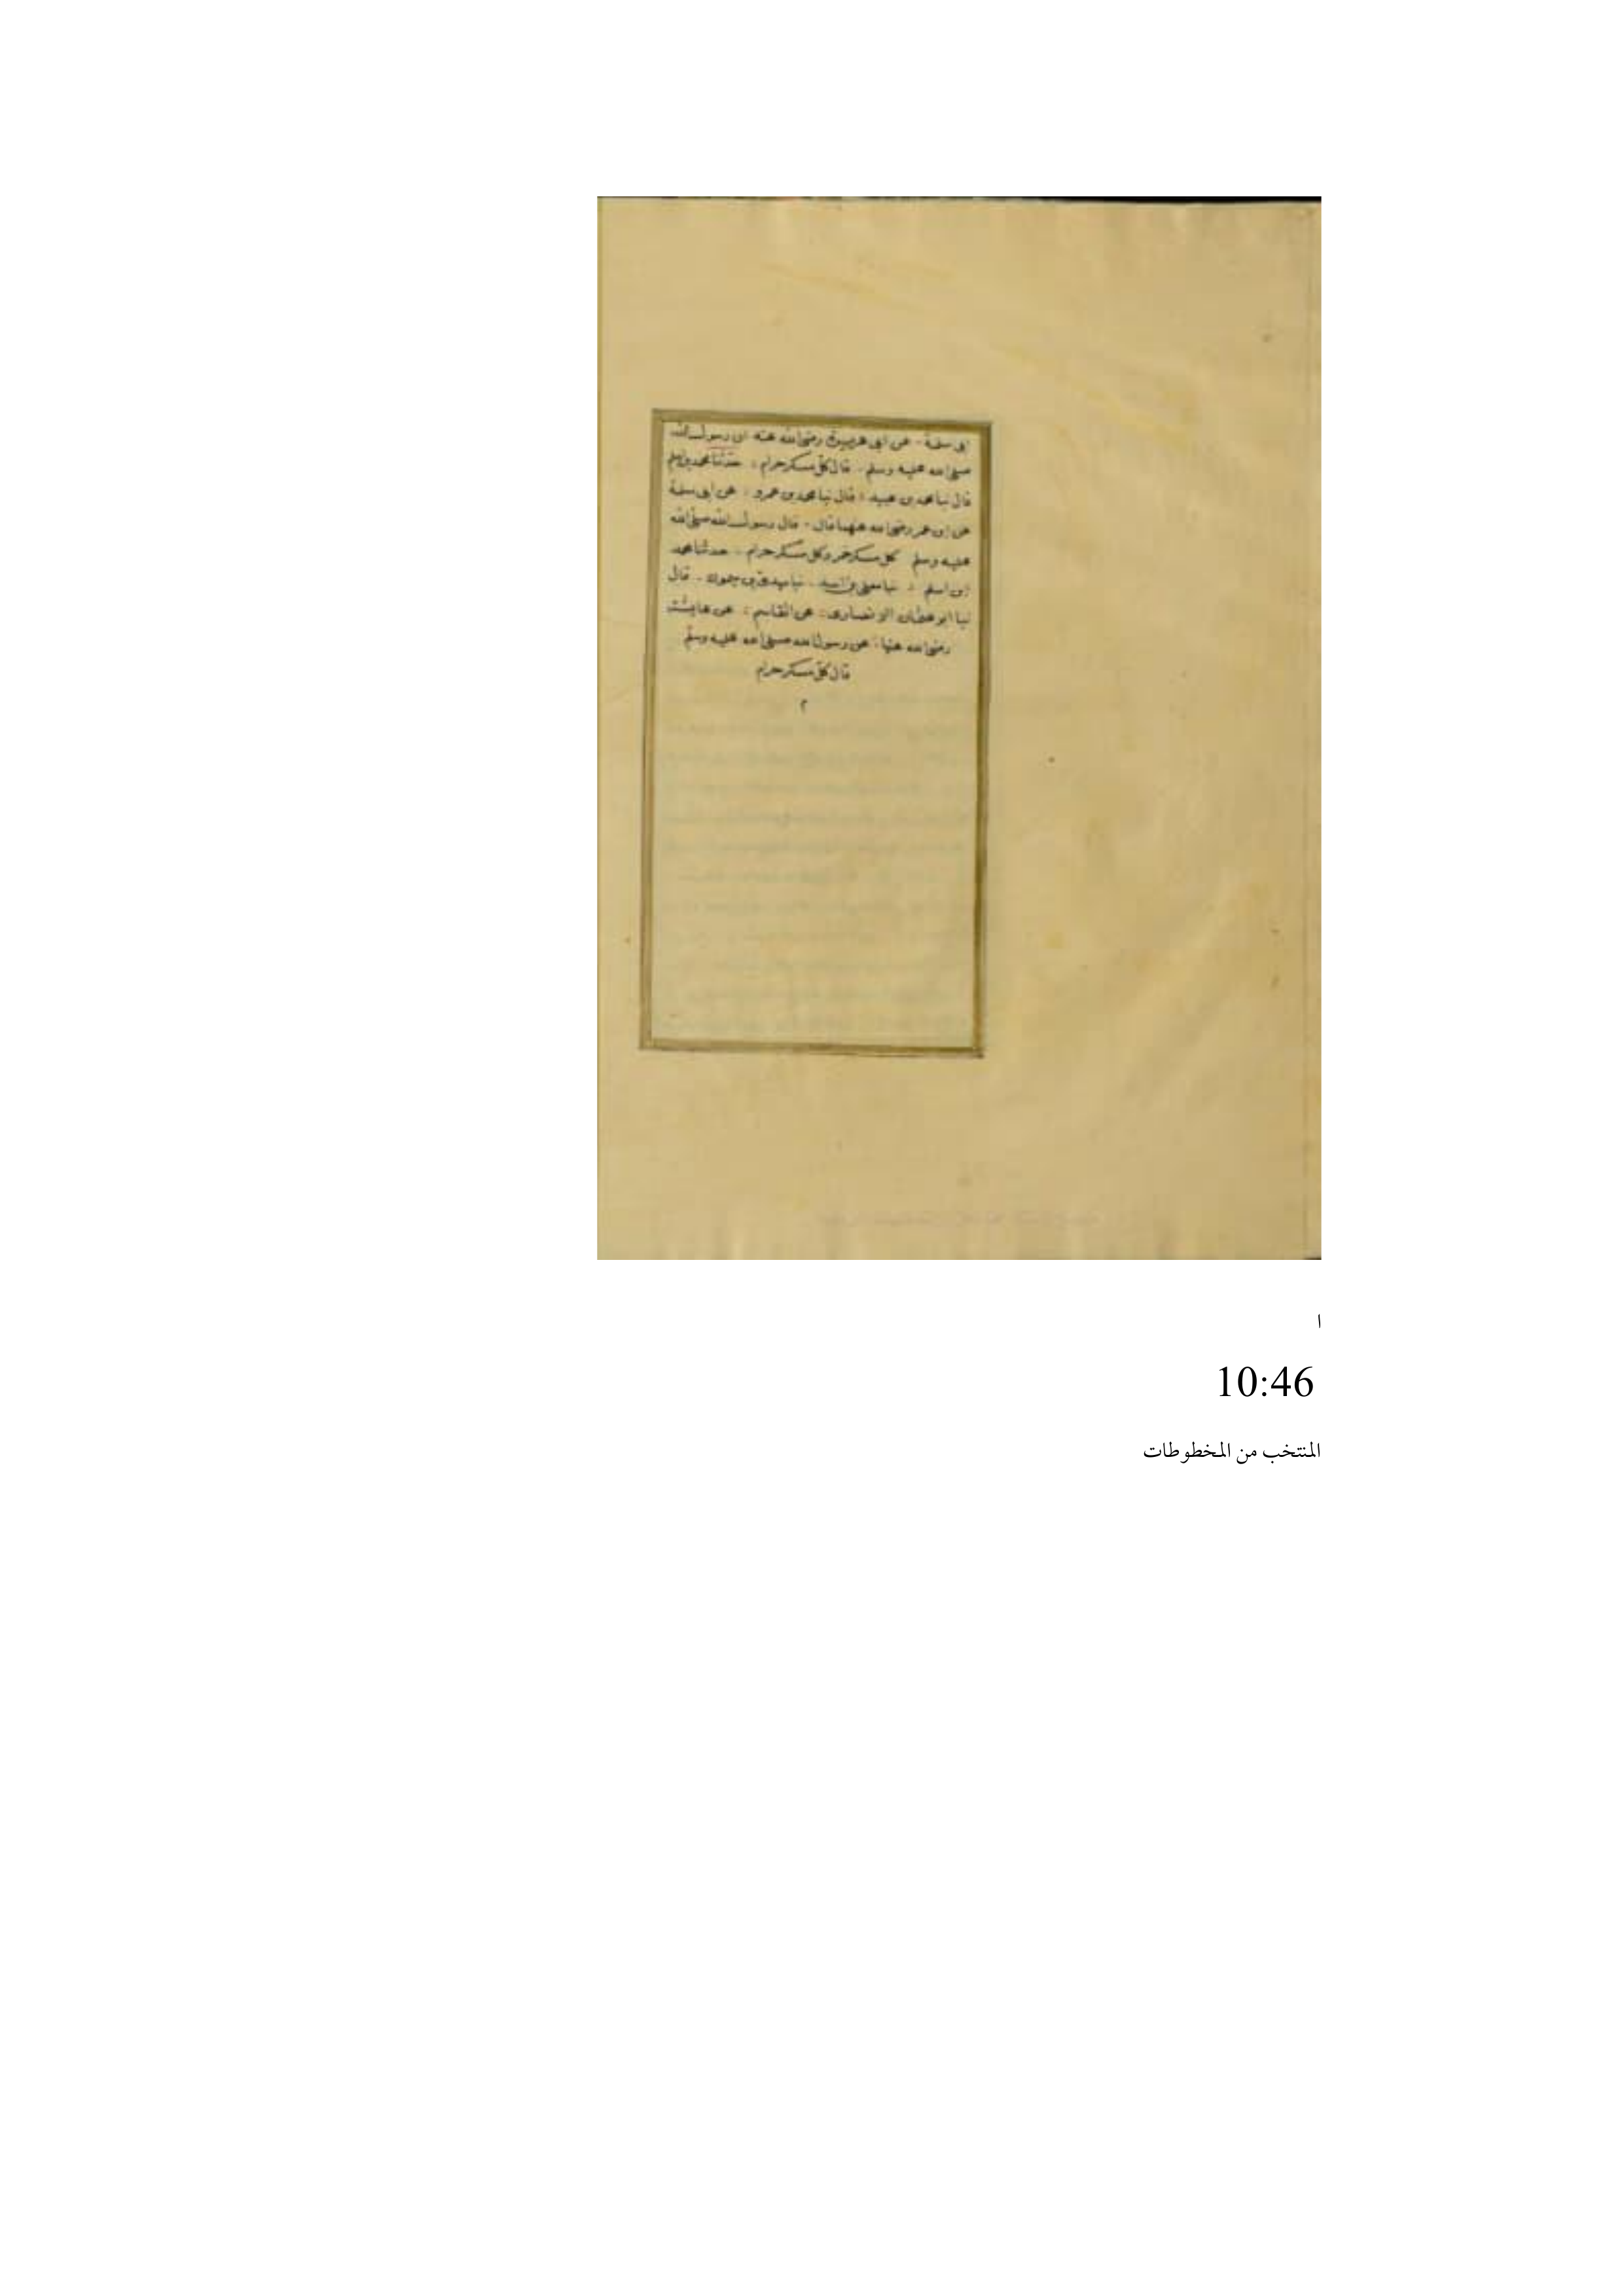 ابى سلمة عن ابى هريرة رضى الله عنه ان رسول الله
صلى الله عليه وسلم قال كل مسكر حرام حدثنا محمد بن اسلم
قال نبا محمد بن عبيد قال نبا محمد بن عمرو عن ابى سلمة
عن ابن عمر رضى الله عنهما قال قال رسول الله صلى الله
عليه وسلم كل مسكر خمر وكل مسكر حرام حدثنا محمد
ابن اسلم نبا بن اسد نبا مهدى بن ميمون قال
نبا ابو عثمان الانصارى عن القاسم عن عايشة
رضى الله عنها عن رسول الله صلى الله عليه وسلم
قال كل مسكر حرام
م
ا
10:46
المنتخب من المخطوطات